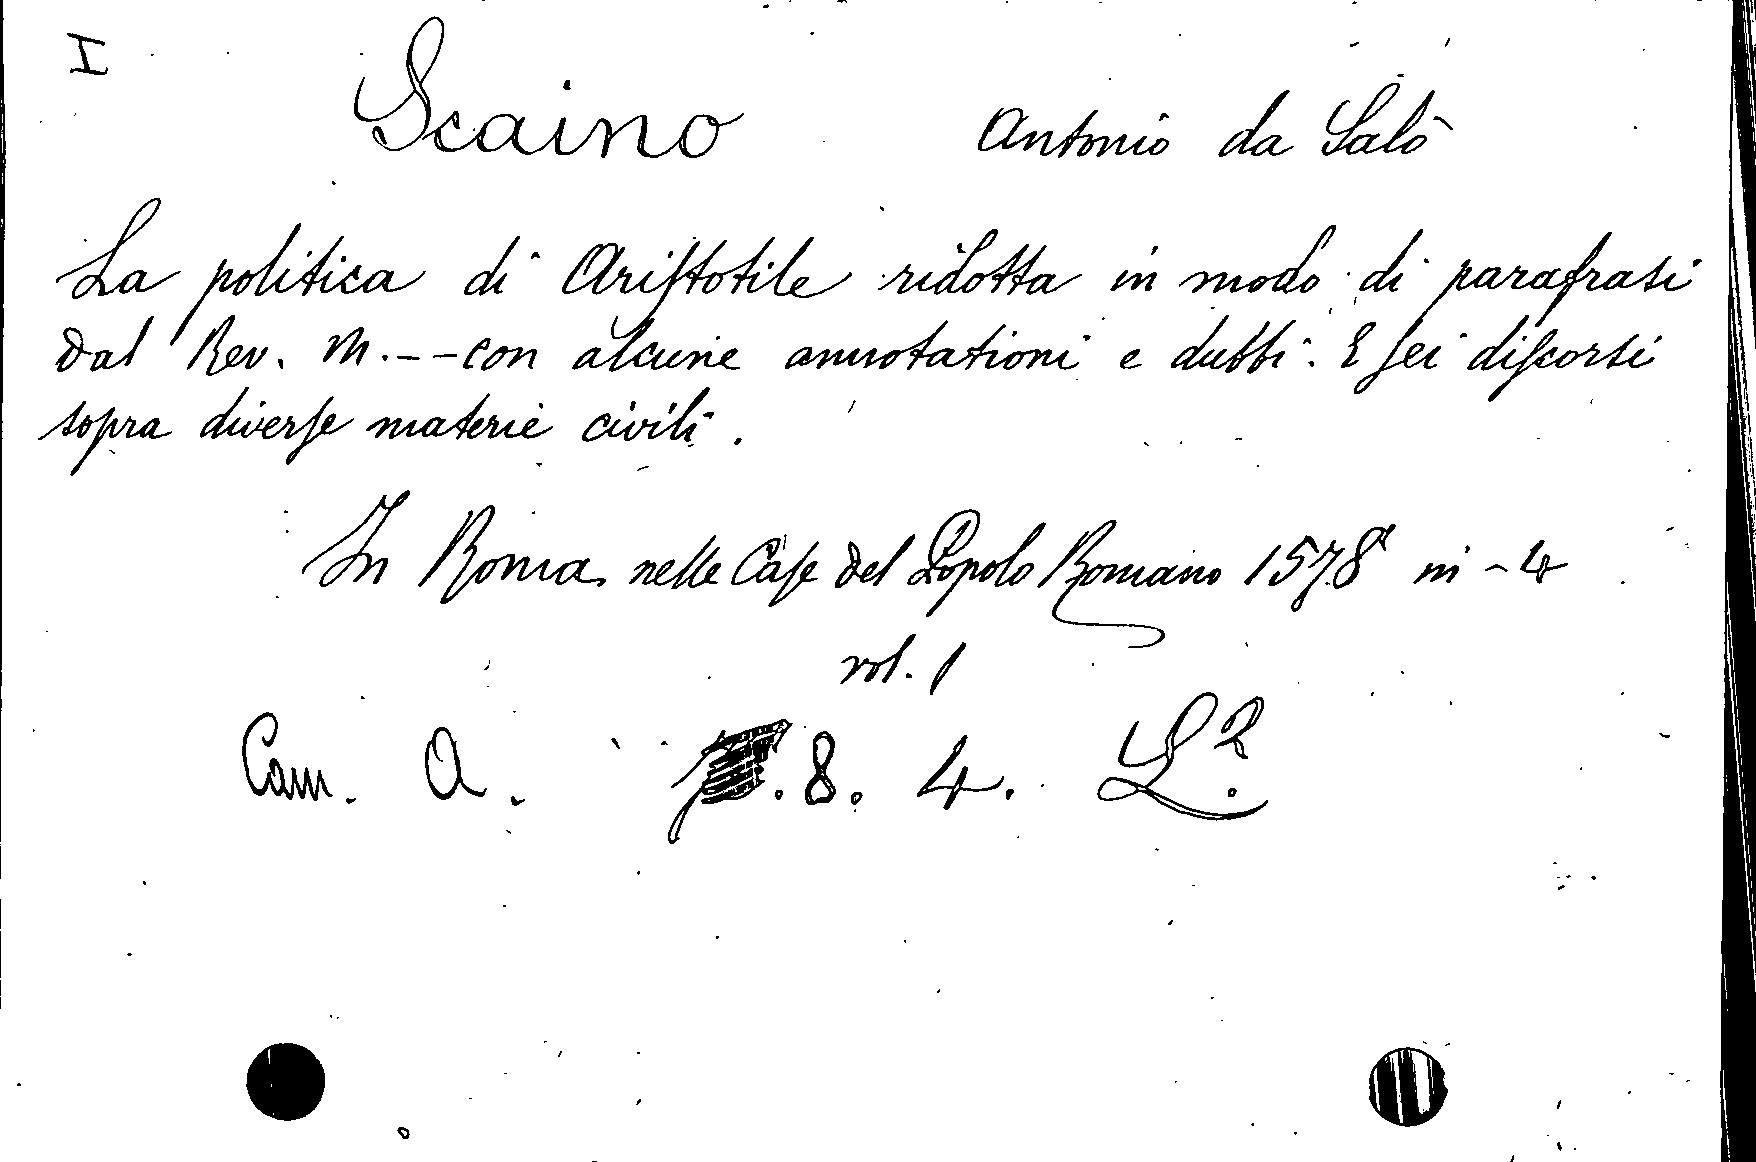 I
Scaino Antonio da Salò
La politica di Ariſtotile ridotta in modo di parafrasi
dal Rev. M.---con alcune annotationi e dubbi. E ſei diſcorsi
sopra diverſe materie civili.
In Roma nelle Caſe del Popolo Romano 1578 in-4
vol. 1
Cam. A. .8. 4. L<sup>a</sup>.